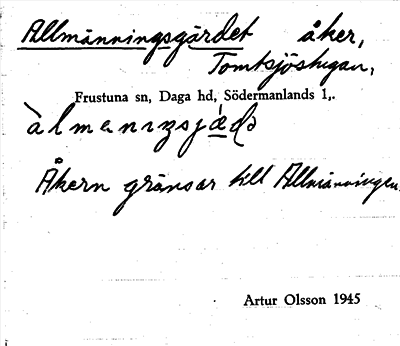 Allmänningsgärdet åker,
Tomtsjöstugan,
Frustuna sn, Daga hd, Södermanlands l,.
Åkern gränsar till Allmänningen.
Artur Olsson 1945